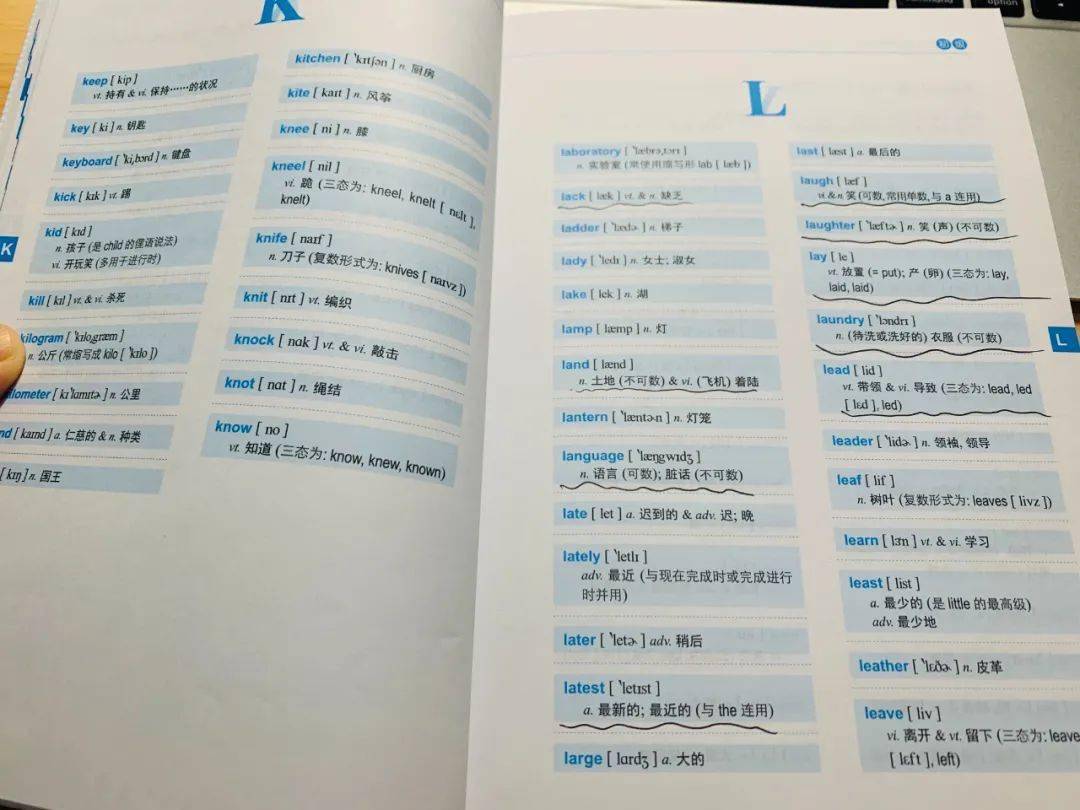 K
keep [ kip ]
vt. 持有 & vi. 保持……的状况
key [ ki ] n. 钥匙
keyboard [ ˋki͵bɔrd ] n. 键盘
kick [ kɪk ] vt. 踢
kid [ kɪd ]
n. 孩子 (是 child 的俚语说法)
vi. 开玩笑 (多用于进行时)
kill [ kɪl ] vt. & vi. 杀死
kilogram [ ˋkɪlə͵græm ]
n. 公斤 (常缩写成 kilo [ ˋkɪlo ])
[ kɪˋlɑmɪtɚ ] n. 公里
[ kaɪnd ] a. 仁慈的 & n. 种类
[ kɪŋ ] n. 国王
kitchen [ ˋkɪtʃən ] n. 厨房
kite [ kaɪt ] n. 风筝
knee [ ni ] n. 膝
kneel [ nil ]
vi. 跪 (三态为: kneel, knelt [ nɛlt ],
knelt)
knife [ naɪf ]
n. 刀子 (复数形式为: knives [ naɪvz ])
knit [ nɪt ] vt. 编织
knock [ nɑk ] vt. & vi. 敲击
knot [ nɑt ] n. 绳结
know [ no ]
vt. 知道 (三态为: know, knew, known)
K
初级
L
laboratory [ ˋlæbrə͵tɔrɪ ]
n. 实验室 (常使用缩写形 lab [ læb ])
lack [ læk ] vt. & n. 缺乏
ladder [ ˋlædɚ ] n. 梯子
lady [ ˋledɪ ] n. 女士; 淑女
lake [ lek ] n. 湖
lamp [ læmp ] n. 灯
land [ lænd ]
n. 土地 (不可数) & vi. (飞机) 着陆
lantern [ ˋlæntɚn ] n. 灯笼
language [ ˋlæŋgwɪdʒ ]
n. 语言 (可数); 脏话 (不可数)
late [ let ] a. 迟到的 & adv. 迟; 晚
lately [ ˋletlɪ ]
adv. 最近 (与现在完成时或完成进行
时并用)
later [ ˋletɚ ] adv. 稍后
latest [ ˋletɪst ]
a. 最新的; 最近的 (与 the 连用)
large [ lɑrdʒ ] a. 大的
last [ læst ] a. 最后的
laugh [ læf ]
vi. & n. 笑 (可数, 常用单数, 与 a 连用)
laughter [ ˋlæftɚ ] n. 笑 (声) (不可数)
lay [ le ]
vt. 放置 (= put); 产 (卵) (三态为: lay,
laid, laid)
laundry [ ˋlɔndrɪ ]
n. (待洗或洗好的) 衣服 (不可数)
lead [ lid ]
vt. 带领 & vi. 导致 (三态为: lead, led
[ lɛd ], led)
leader [ ˋlidɚ ] n. 领袖, 领导
leaf [ lif ]
n. 树叶 (复数形式为: leaves [ livz ])
learn [ lɝn ] vt. & vi. 学习
least [ list ]
a. 最少的 (是 little 的最高级)
adv. 最少地
leather [ ˋlɛðɚ ] n. 皮革
leave [ liv ]
vi. 离开 & vt. 留下 (三态为: leave
[ lɛft ], left)
L
option